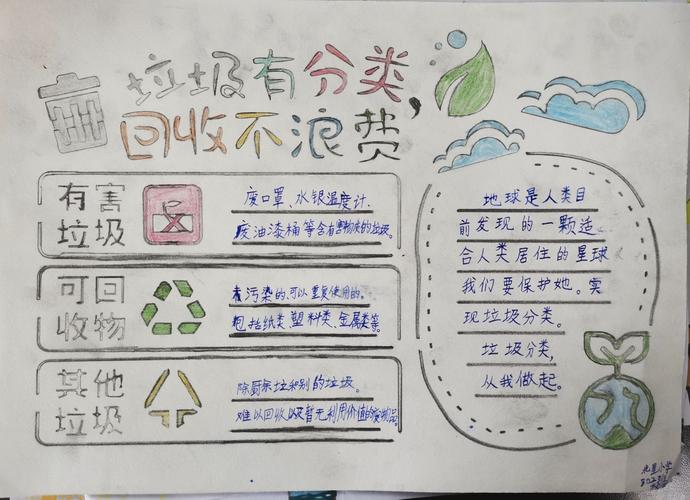 垃圾有分类,
回收不浪费
有害
垃圾
废口罩、水银温度计.
废油漆桶等含有害物质的垃圾。
可回
收物
污染的,可以重复使用的。
包括纸类,塑料类、金属类等。
其他
垃圾
除厨余垃圾别的垃圾。
难以回收以及暂无利用价值的废物品。
地球是人类目
前发现的一颗适
合人类居住的星球
我们要保护她。实
现垃圾分类。
垃圾分类,
从我做起。
小学